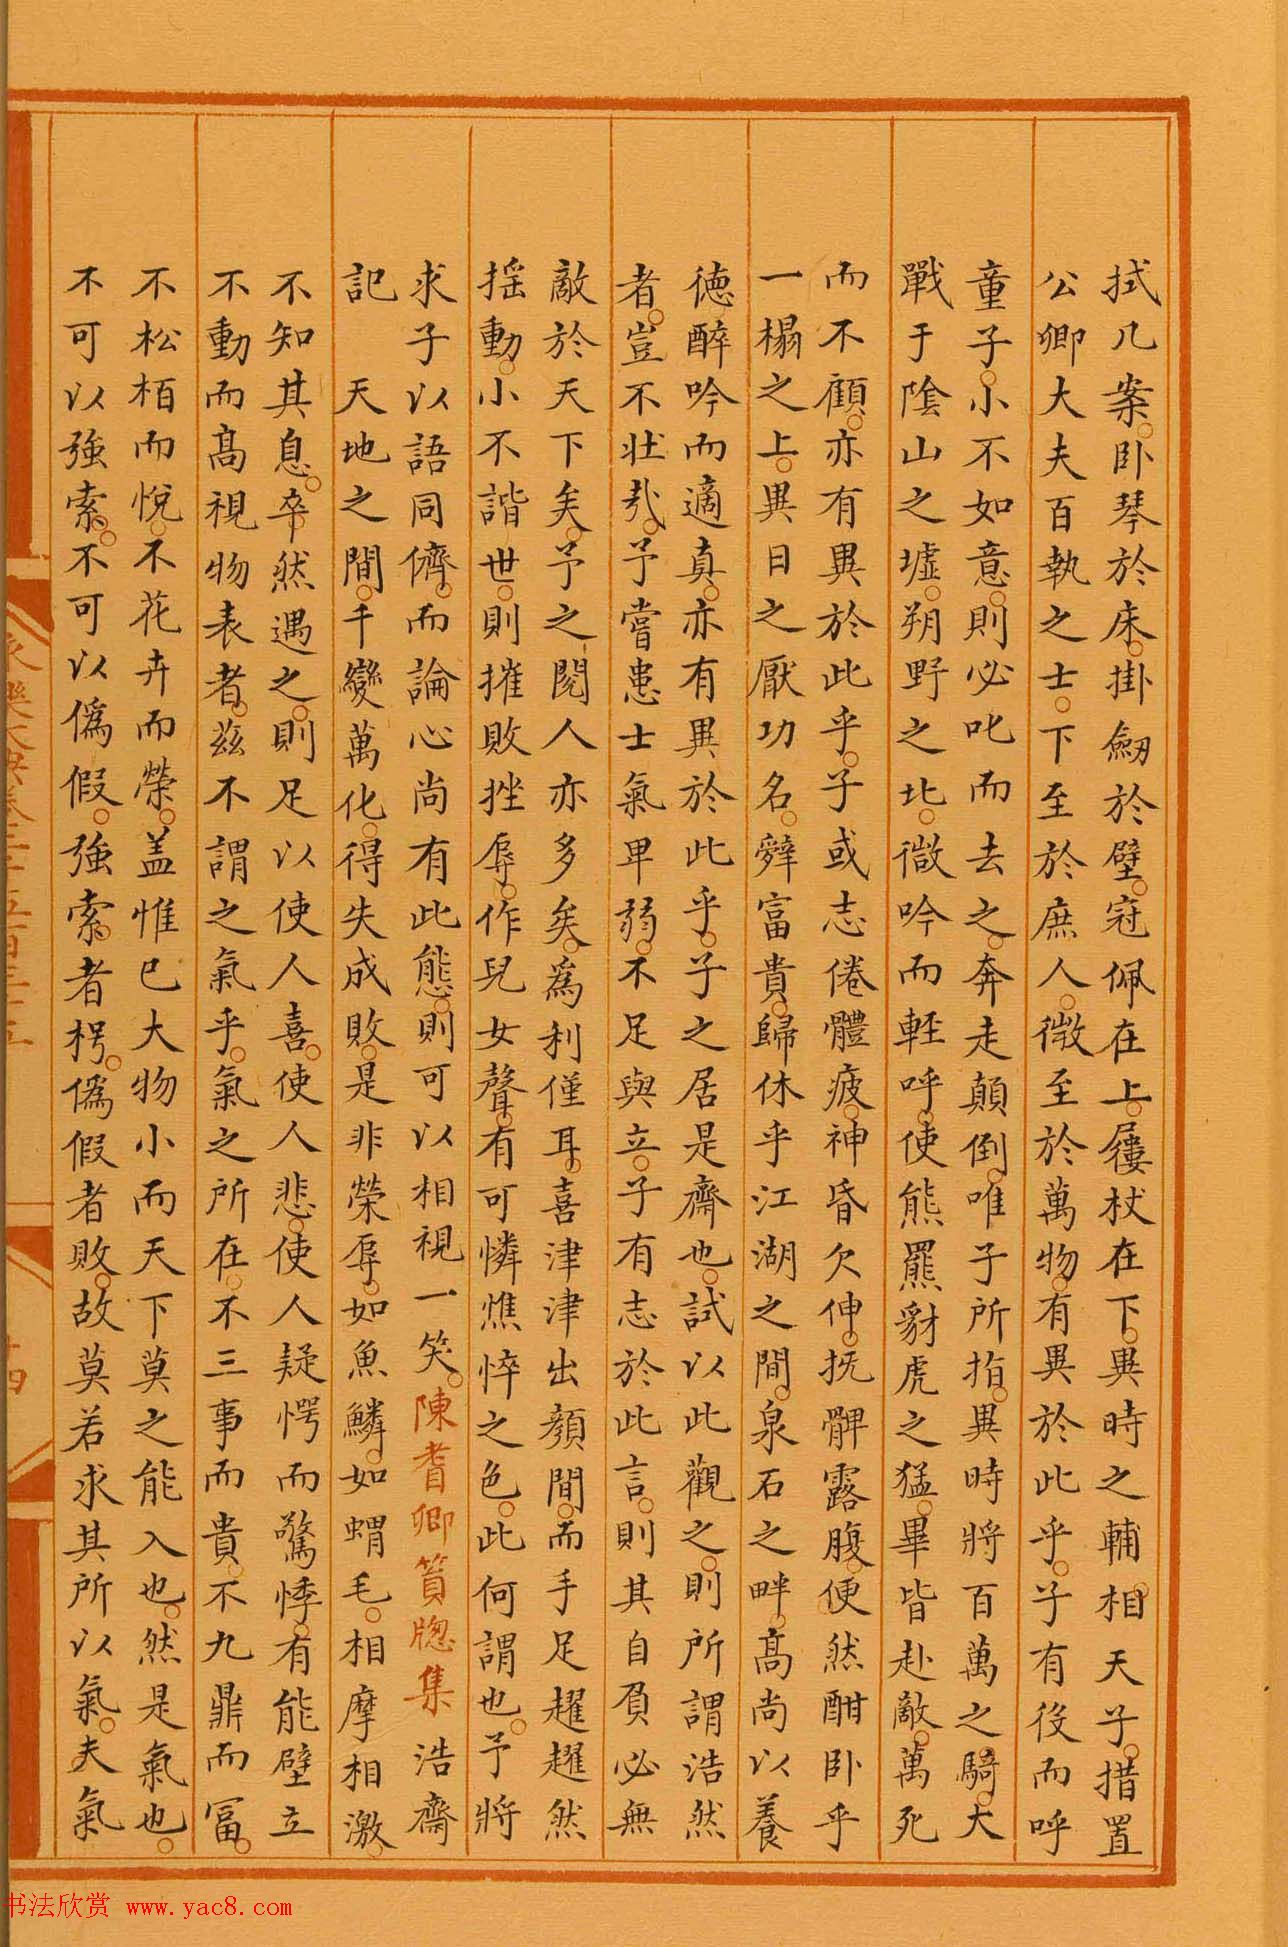 拭几案。卧琴於床。掛劒於壁。冠佩在上。屨杖在下。異時之輔相天子。措置
公卿大夫百執之士。下至於庶人。微至於萬物。有異於此乎。子有役而呼
童子。小不如意。則必叱而去之。奔走顛倒。唯子所指。異時將百萬之騎。大
戰于陰山之墟。朔野之北。微吟而輕呼。使熊羆豺虎之猛。畢皆赴敵。萬死
而不顧。亦有異於此乎。子或志倦體疲。神昏欠伸。撫髀露腹。便然酣卧乎
一榻之上。異日之厭功名。辤富貴。歸休乎江湖之間。泉石之畔。髙尚以養
徳。醉吟而適真。亦有異於此乎。子之居是齋也。試以此觀之。則所謂浩然
者。豈不壮哉。予嘗患士氣卑弱。不足與立。子有志於此言。則其自負必無
敵於天下矣。予之閲人亦多矣。為利僅耳。喜津津出顔間。而手足趯趯然
揺動。小不諧世。則摧敗挫辱。作兒女聲。有可憐憔悴之色。此何謂也。予將
求子以語同儕。而論心尚有此態。則可以相視一笑。陳耆卿篔牕集 浩齋
記 天地之間。千變萬化。得失成敗。是非榮辱。如魚鱗。如蝟毛。相摩相激。
不知其息。卒然遇之。則足以使人喜。使人悲。使人疑愕而驚悸。有能壁立
不動而髙視物表者。兹不謂之氣乎。氣之所在。不三事而貴。不九鼎而冨。
不松栢而悦。不花卉而榮。盖惟已大物小而天下莫之能入也。然是氣也。
不可以強索。不可以偽假。強索者枵。偽假者敗。故莫若求其所以氣。夫氣
永樂大典卷二千五百三十五
十四
书法欣赏 www.yac8.com